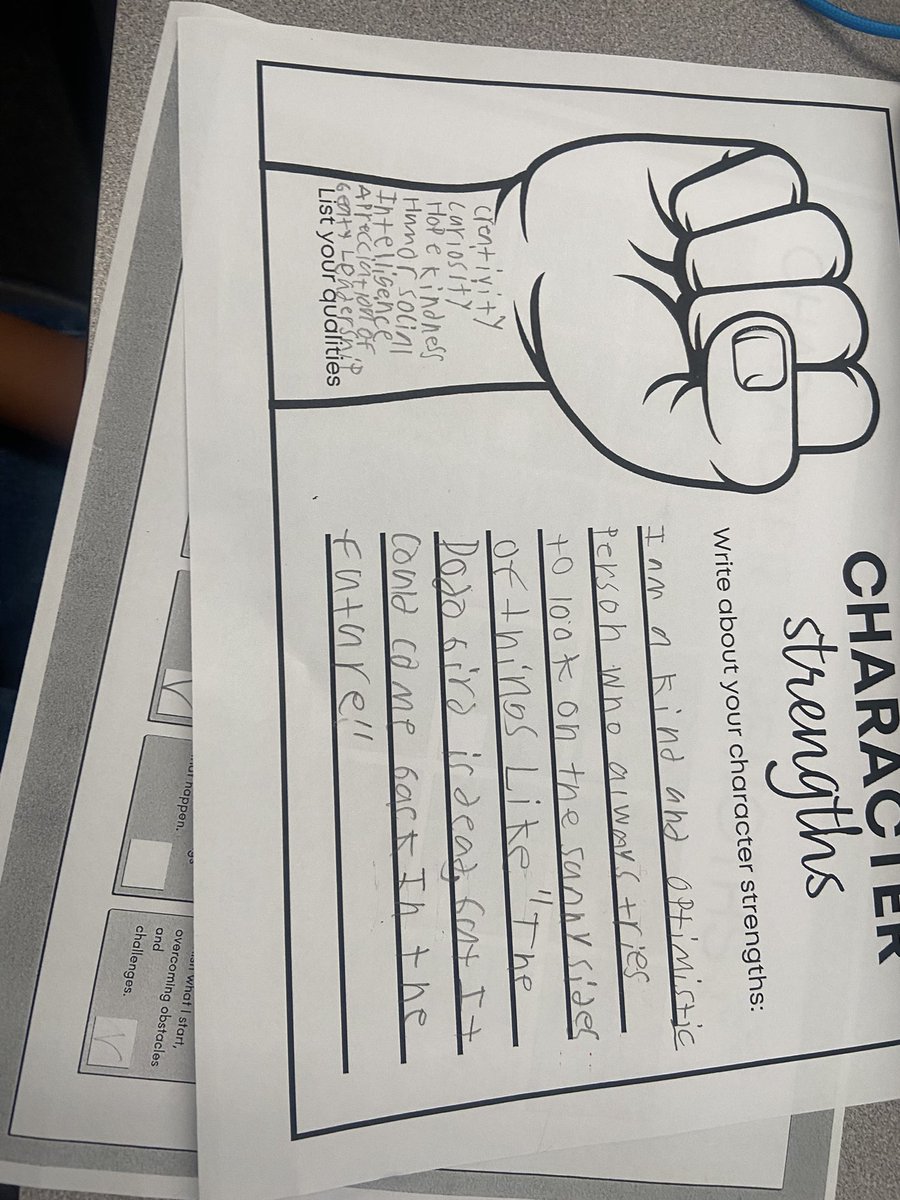 CHARACTER
strengths
Write about your character strengths:
I am a kind and optimistic
Person who always tries
to look on the sunny sides
of things Like "The
Dodo bird is dead, but It
could come back In the
future!!
creativity
curiosity
Hope kindness
Humor social
Intelligence
Appreciation of
beauty Leadership
List your qualities
happen.
what I start,
overcoming obstacles
and
challenges.